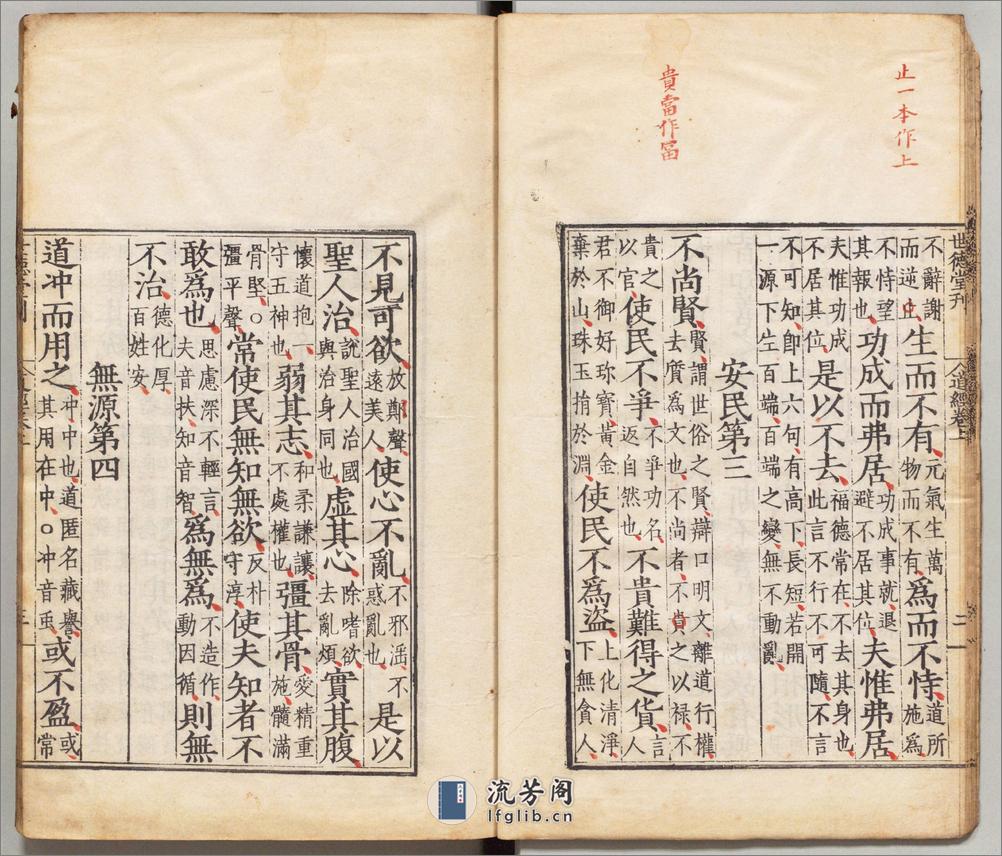 止一本作上
貴當作冨
世德堂刊
道經卷上
二
不辭謝而逆止生而不有元氣生萬物而不有爲而不恃道所施爲
不恃望其報也功成而弗居功成事就退避不居其位夫惟弗居
夫惟功成不居其位是以不去福德常在不去其身也此言不行不可隨不言
不可知即上六句有高下長短若開一源下生百端百端之變無不動亂
安民第三
不尚賢賢謂世俗之賢辯口明文離道行權去質爲文也不尚者不貴之以祿不
貴之以官使民不爭不爭功名返自然也不貴難得之貨言人
君不御好珍寶黃金棄於山珠玉捐於淵使民不爲盜上化清淨下無貪人
不見可欲放鄭聲遠美人使心不亂不邪淫不惑亂也是以
聖人治說聖人治國與治身同也虛其心除嗜欲去亂煩實其腹
懷道抱一守五神也弱其志和柔謙讓不處權也彊其骨愛精重施髓滿
骨堅○彊平聲常使民無知無欲反朴守淳使夫知者不
敢爲也思慮深不輕言夫音扶知音智爲無爲不造作動因循則無
不治德化厚百姓安
無源第四
道冲而用之冲中也道匿名藏譽其用在中○冲音虫或不盈或常
流芳阁
lfglib.cn